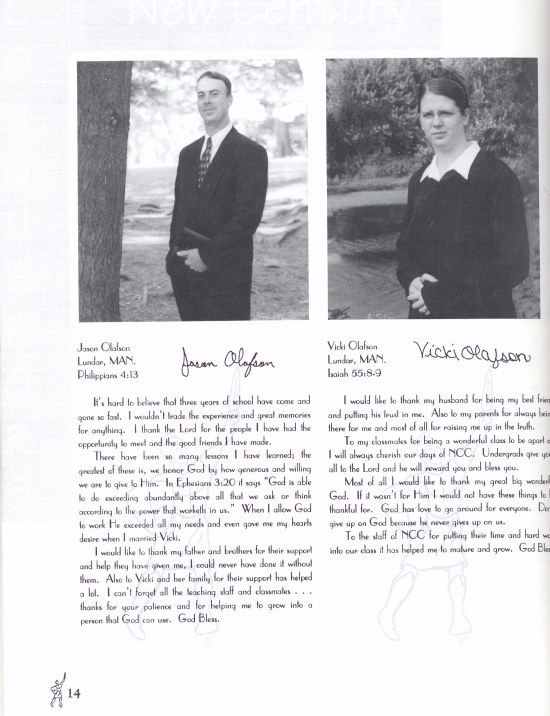 New Century
Jason Olafson
Lundar, MAN.
Philippians 4:13
Jason Olafson
It's hard to believe that three years of school have come and
gone so fast. I wouldn't trade the experience and great memories
for anything. I thank the Lord for the people I have had the
opportunity to meet and the good friends I have made.
There have been so many lessons I have learned; the
greatest of these is, we honor God by how generous and willing
we are to give to Him. In Ephesians 3:20 it says "God is able
to do exceeding abundantly above all that we ask or think
according to the power that worketh in us." When I allow God
to work He exceeded all my needs and even gave me my hearts
desire when I married Vicki.
I would like to thank my father and brothers for their support
and help they have given me, I could never have done it without
them. Also to Vicki and her family for their support has helped
a lot. I can't forget all the teaching staff and classmates . . .
thanks for your patience and for helping me to grow into a
person that God can use. God Bless.
Vicki Olafson
Lundar, MAN.
Isaiah 55:8-9
Vicki Olafson
I would like to thank my husband for being my best
and putting his trust in me. Also to my parents for always
there for me and most of all for raising me up in the truth.
To my classmates for being a wonderful class to be apart
I will always cherish our days of NCC. Undergrads give
all to the Lord and he will reward you and bless you.
Most of all I would like to thank my great big
God. If it wasn't for Him I would not have these things to
thankful for. God has love to go around for everyone.
give up on God because he never gives up on us.
To the staff of NCC for putting their time and hard
into our class it has helped me to mature and grow. God
14